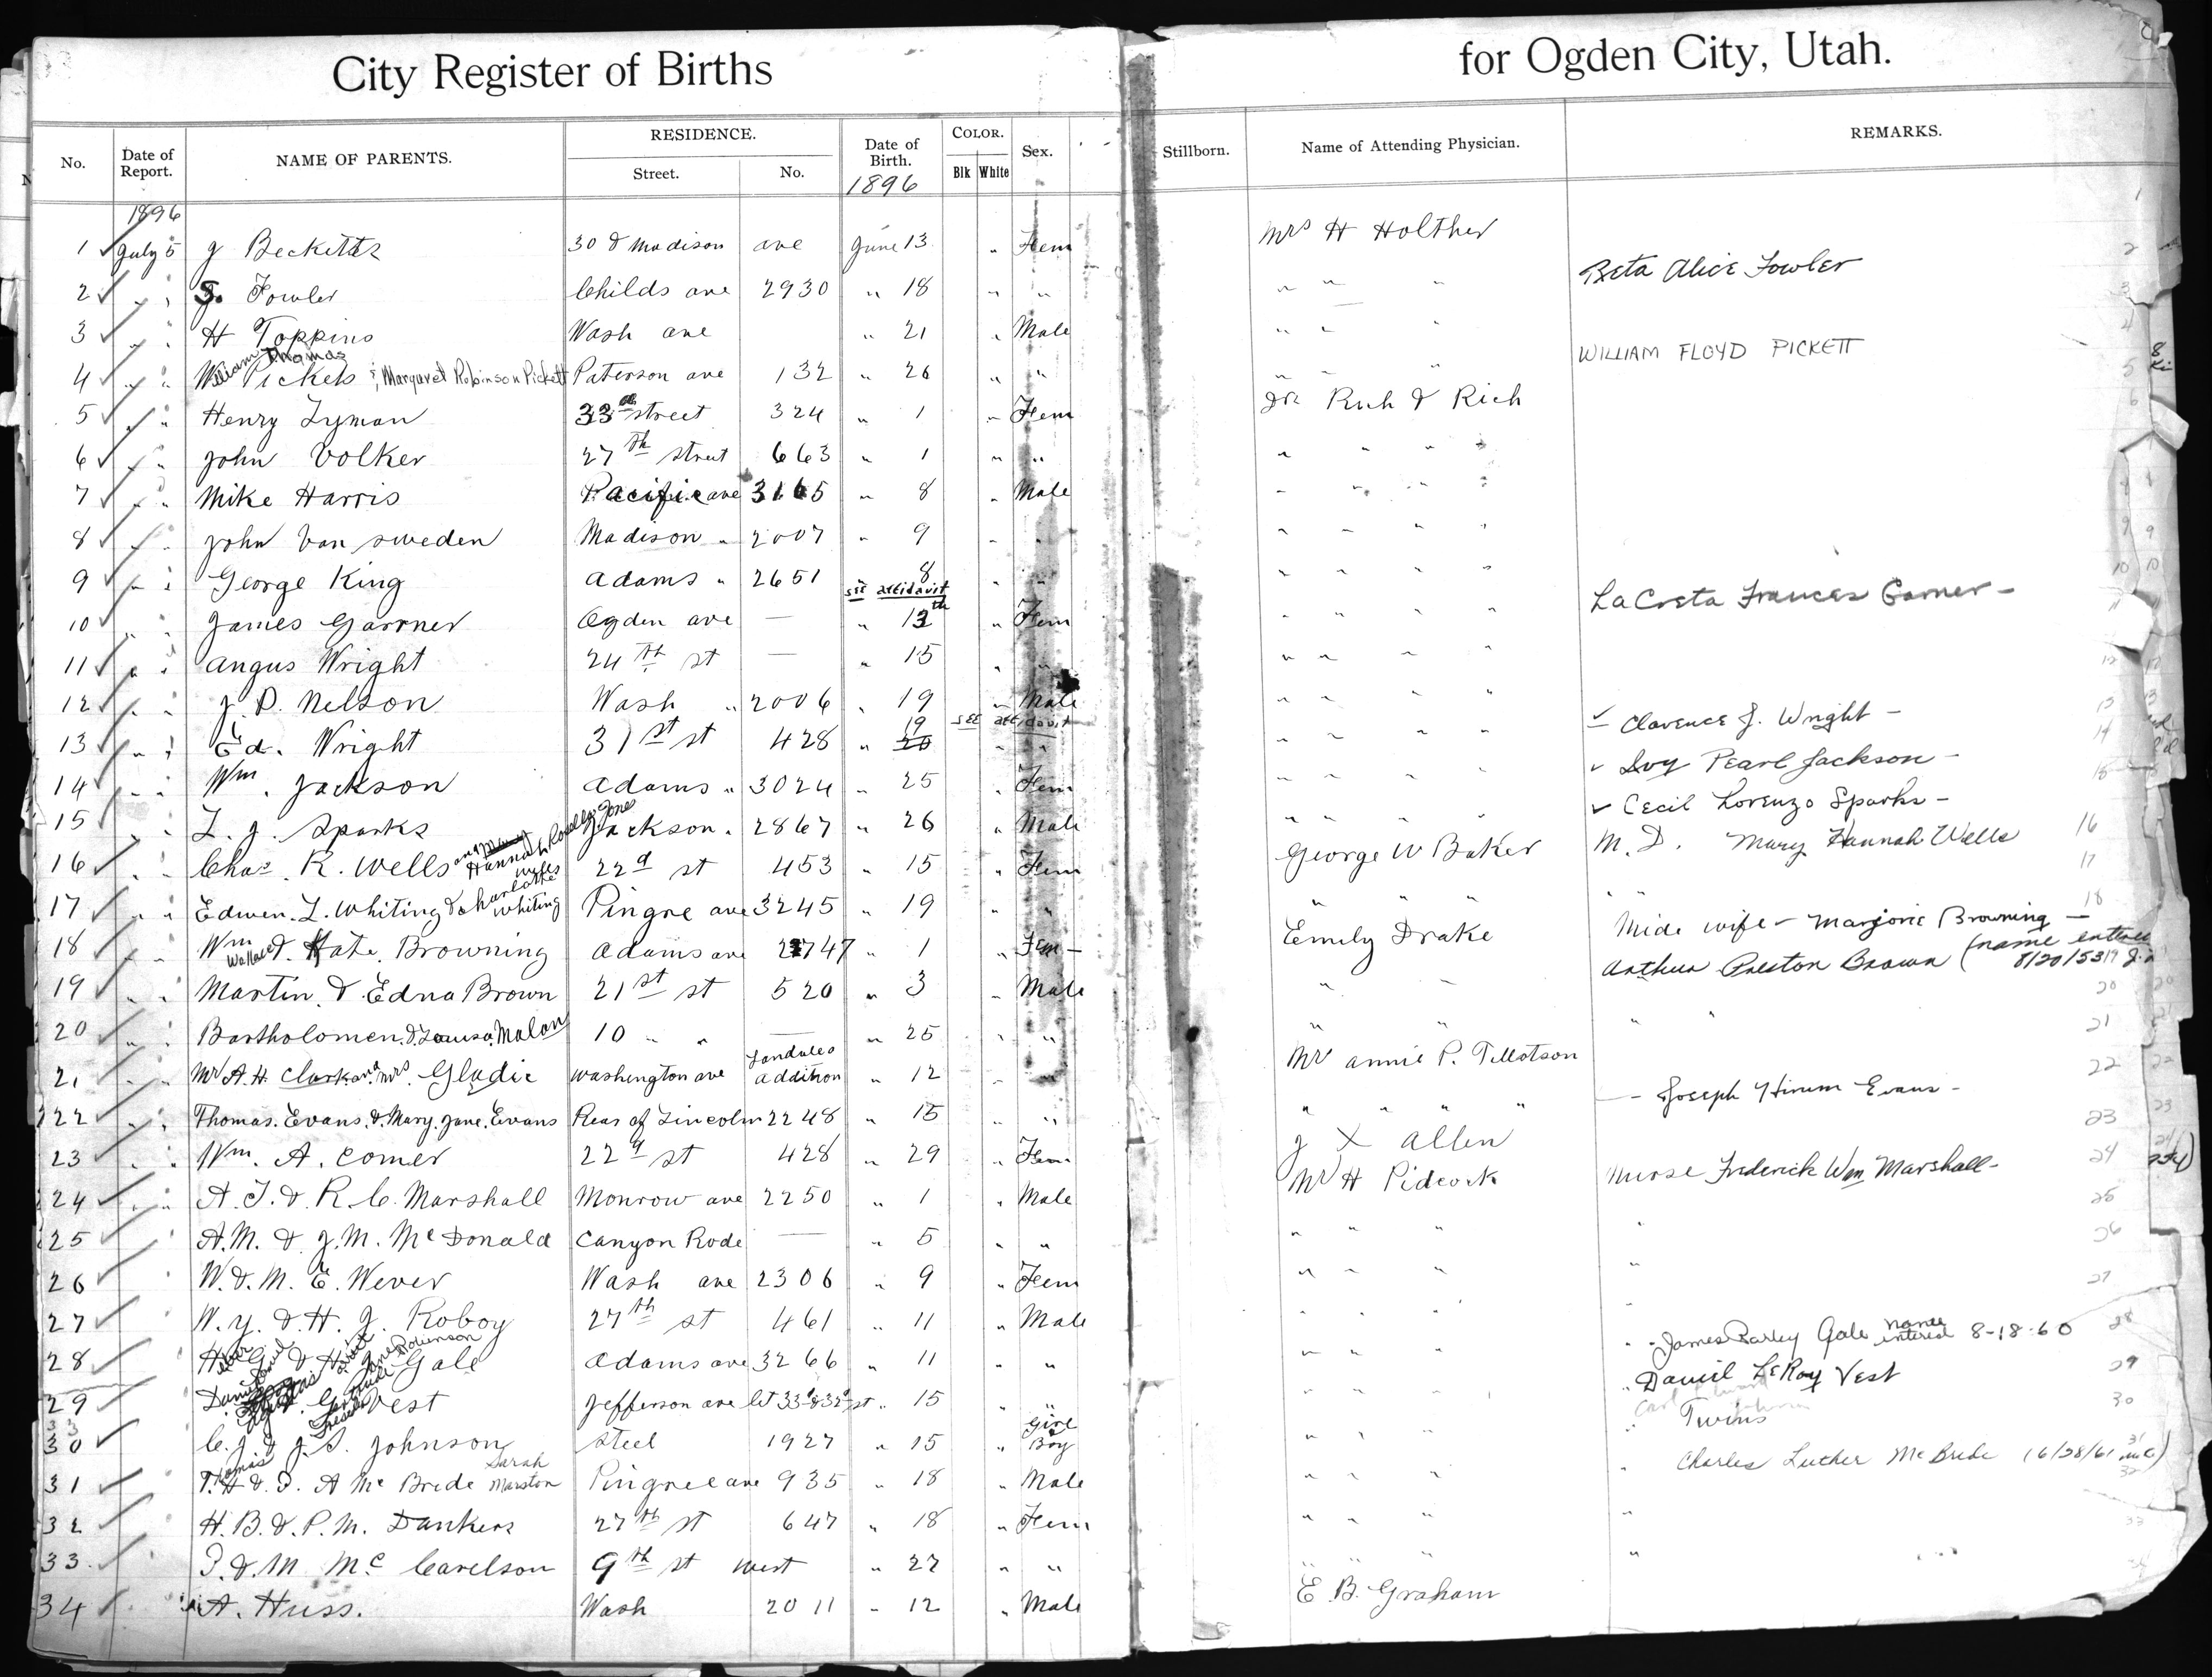 City Register of Births for Ogden City, Utah.
No. Date of Report. NAME OF PARENTS. RESIDENCE. Street. No. Date of Birth. COLOR. Blk White Sex. Stillborn. Name of Attending Physician. REMARKS.
1896 1896
1 July 5 J Becketts 30 & Madison ave June 13 " Fem Mrs H Holther
2 " " S. Fowler Childs ave 2930 " 18 " " " " " Beta Alice Fowler
3 " " H Toppins Wash ave " 21 " Male " " "
William Thomas
4 " " Pickets & Margaret Robinson Pickett Paterson ave 132 " 26 " " " " " WILLIAM FLOYD PICKETT
5 " " Henry Lyman 33d street 324 " 1 " Fem Drs Rich & Rich
6 " " John Volker 27th street 663 " 1 " " " " " "
7 " " Mike Harris Pacific ave 3165 " 8 " Male " " " "
8 " " John Van Sweden Madison " 2007 " 9 " " " " " "
9 " " George King Adams " 2651 8 " " " " " "
see affidavit
10 " " James Garrner Ogden ave — " 13th " Fem " " " " LaCreta Frances Garner -
11 " " Angus Wright 24th st — " 15 " " " " " "
12 " " J. P. Nelson Wash " 2006 " 19 " Male " " " "
19 see affidavit
13 " " Ed. Wright 31st st 428 " 20 " " " " " " Clarence J. Wright -
14 " " Wm. Jackson Adams " 3024 " 25 " Fem " " " " Ivy Pearl Jackson -
15 " " L. J. Sparks Jackson " 2867 " 26 " Male " " " " Cecil Lorenzo Sparks -
16 " " Chas. R. Wells and Hannah Wells 22d st 453 " 15 " Fem George W Baker M. D. Mary Hannah Wells
17 " " Edwen. L. Whiting & Charlotte Whiting Pingre ave 3245 " 19 " " " " " " "
18 " " Wm Wallace & Kate Browning Adams ave 2747 " 1 " Fem - Emily Drake Mide wife - Marjorie Browning -
19 " " Martin. & Edna Brown 21st st 520 " 3 " Male " " Arthur Preston Brown (name entered 8/20/53
20 " " Bartholomen. & Louisa Malan 10 " " — " 25 " " " " " "
21 " " Mr A. H. Clark and Mrs. Gladie Washington ave addition " 12 " " Mr Annie P. Tillotson
22 " " Thomas. Evans. & Mary. Jane. Evans Rear of Lincoln 2248 " 15 " " " " " " - Joseph Hirum Evans -
23 " " Wm. A. Comer 22d st 428 " 29 " Fem J X Allen
24 " " A. T. & R. C. Marshall Monrow ave 2250 " 1 " Male Mr H Pidcock Nurse Frederick Wm Marshall -
25 A. M. & J. M. McDonald Canyon Rode — " 5 " " " " " "
26 W. & M. E. Wever Wash ave 2306 " 9 " Fem " " " "
27 W. Y. & H. J. Roboy 27th st 461 " 11 " Male " " " "
28 H. G. & H. J. Gale Adams ave 3266 " 11 " " " " " James Rarley Gale name entered 8-18-60
29 Daniel Vest Jefferson ave bt 33d & 32d st " 15 " " " " " Daniel LeRoy Vest
30 C. J. & J. S. Johnson Steel 1927 " 15 " Girl & Boy " " " Twins
31 Thomas T. H. & S. A McBride Sarah Marston Pingree ave 935 " 18 " Male " " " Charles Luther McBride (6/28/61
32 H. B. & P. M. Dankers 27th st 647 " 18 " Fem " " " "
33. P. & M Mc Carelson 9th st west " 27 " " " " " "
34 A. Huss. Wash 2011 " 12 " Male E. B. Graham